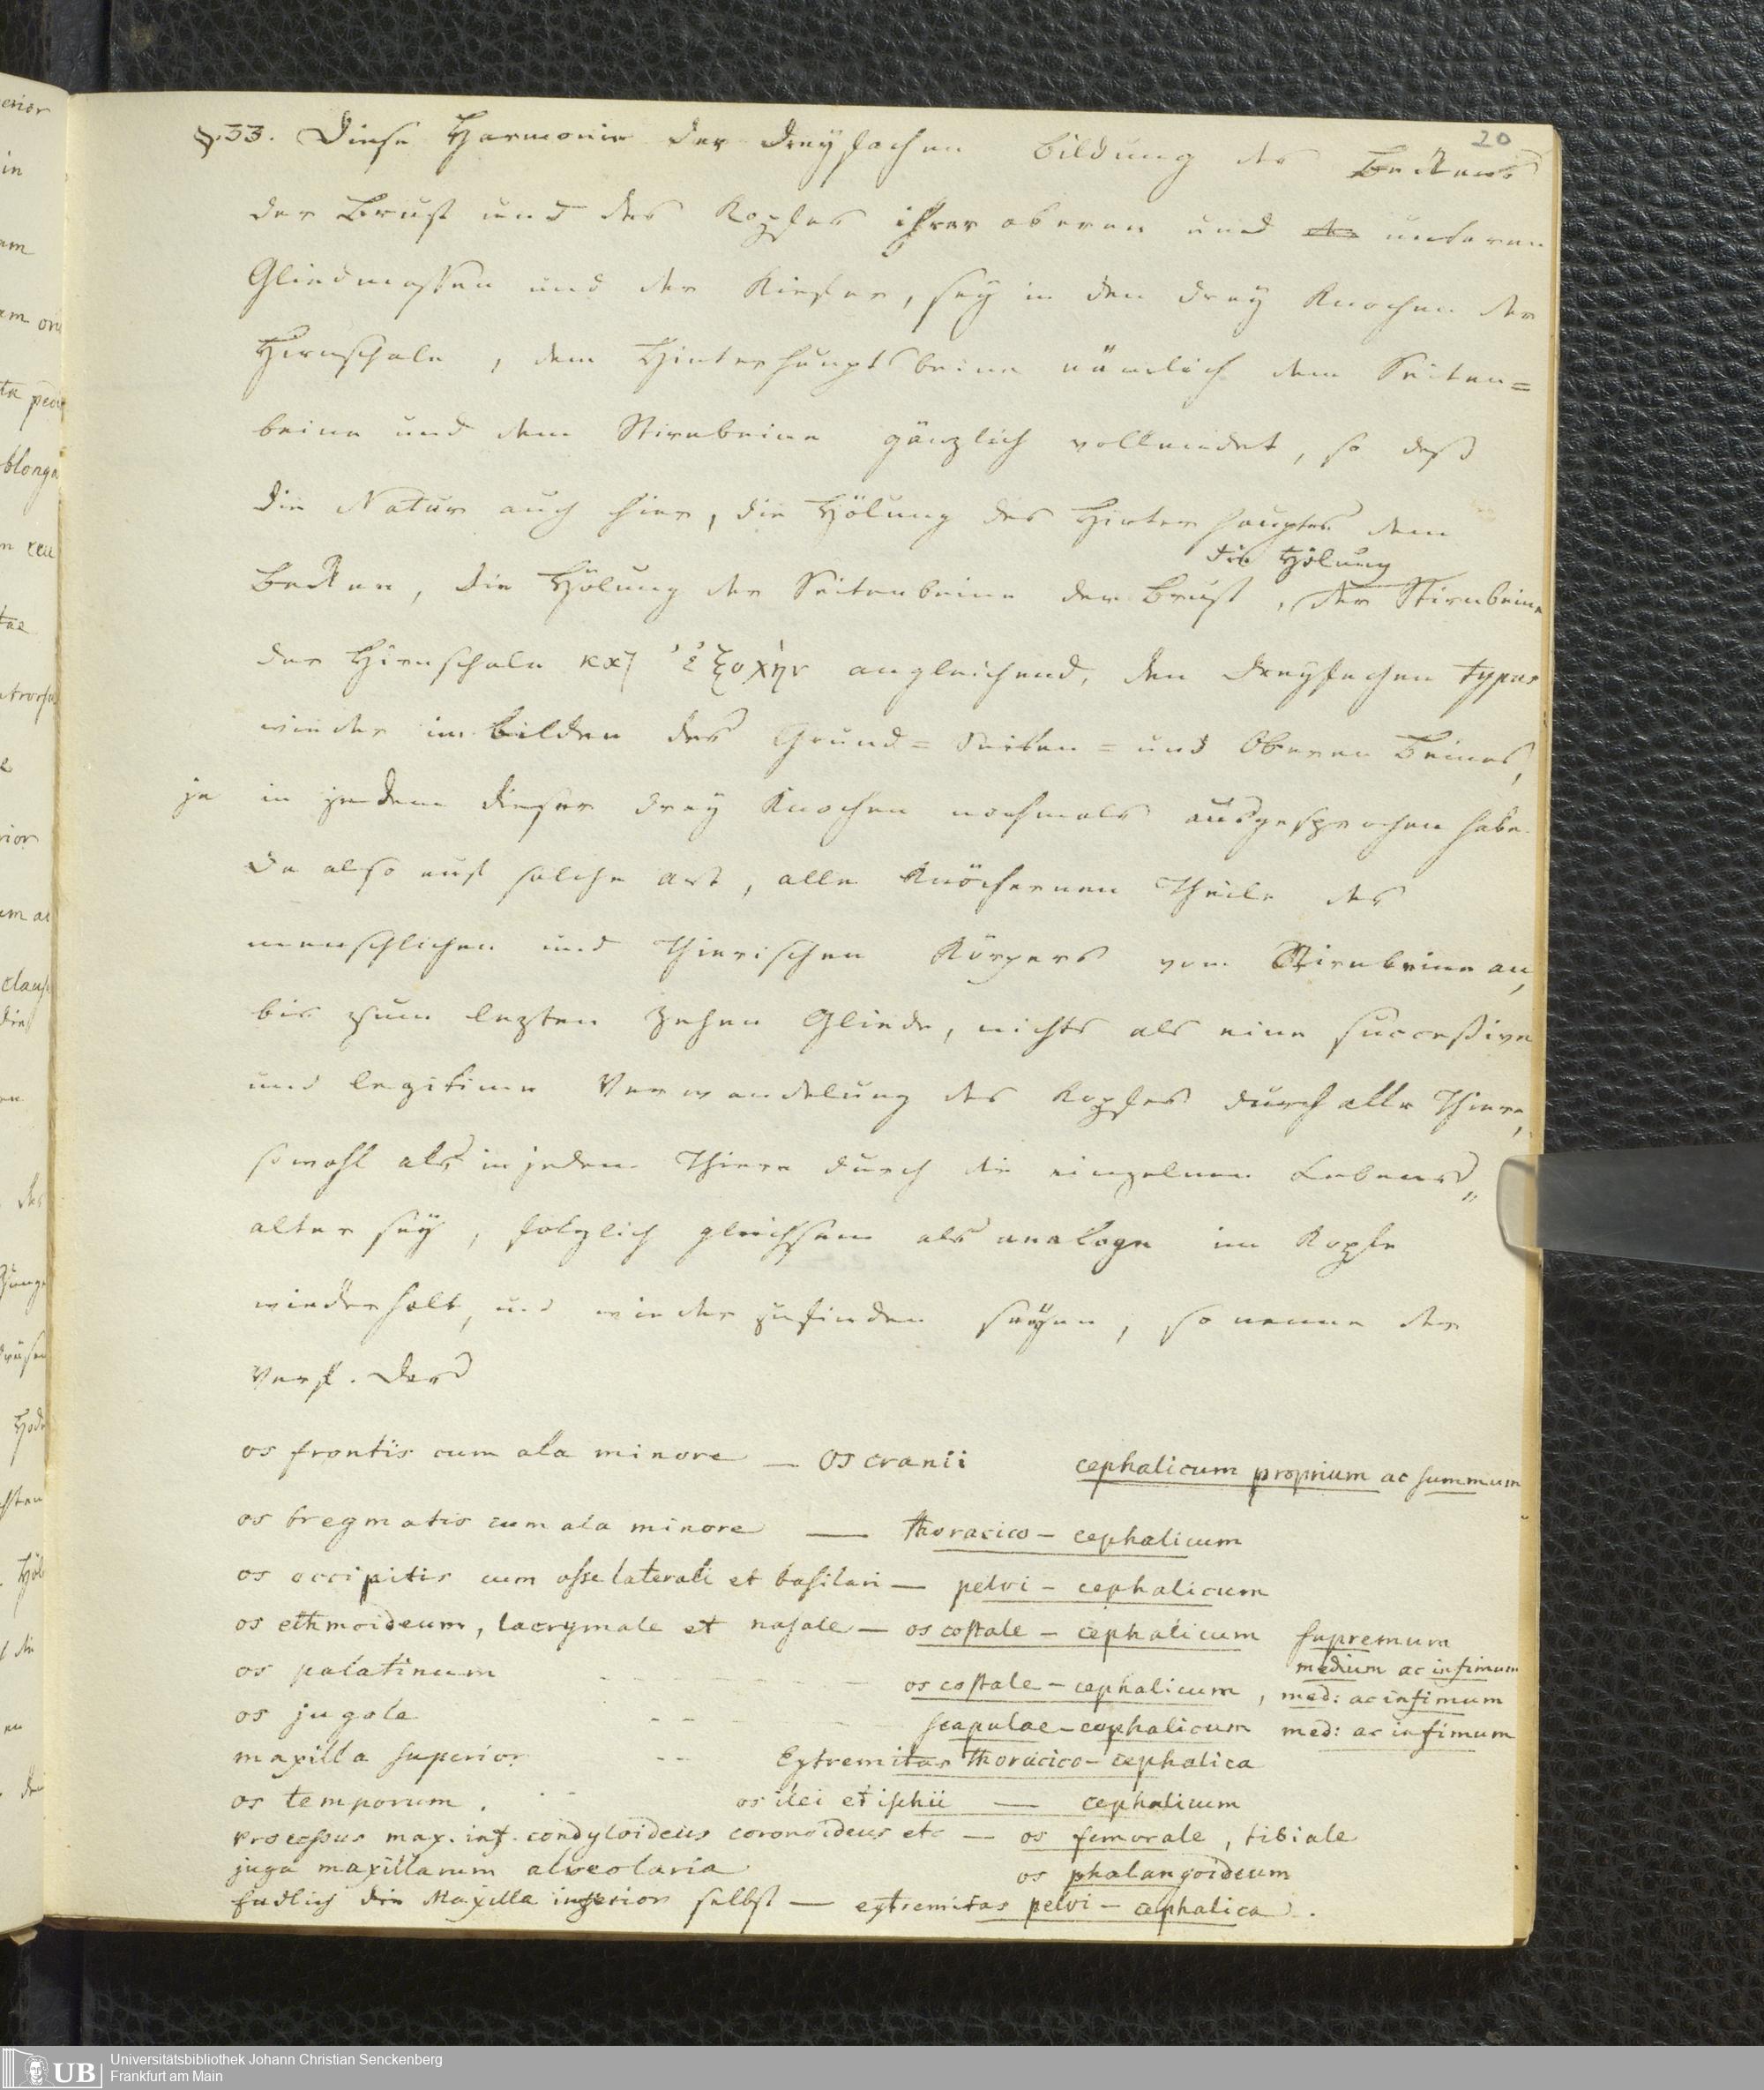 20
§.33. Diese Harmonie der dreyfachen Bildung des Beckens
der Brust und des Kopfes ihrer oberen und unteren
Gliedmassen und der Kiefer, sey in den drey Knochen der
Hirnschale, dem Hinterhauptsbeine nämlich dem Seiten=
beine und dem Stirnbeine gänzlich vollendet, so daß
die Natur auch hier, die Hölung des Hinterhauptes dem
die Hölung
Becken, die Hölung der Seitenbeine der Brust, der Stirnbeine
der Hirnschale κατ ἐξοχὴν angleichend, den dreyfachen typus
wieder im bilden des Grund= Seiten= und Oberen Beines,
ja in jedem dieser drey Knochen nochmals ausgesprochen habe.
Da also auf solche art, alle Knöchernen Theile des
menschlichen und thierischen Körpers vom Stirnbeine an,
bis zum lezten Zehen Gliede, nichts als eine succeßive
und legitime Verwandelung des Kopfes durch alle Thiere,
sowohl als in jedem Thiere durch die einzelnen Lebens„
alter sey, folglich gleichsam als analoge im Kopfe
wiederholt, und wieder zufinden seyen, so nenne der
Verf. das
os frontis cum ala minore — os cranii cephalicum proprium ac summum
os bregmatis cum ala minore — thoracico - cephalicum
os occipitis cum osse laterali et basilari — pelvi - cephalicum
os ethmoideum, lacrymale et nasale — os costale - cephalicum supremum
medium ac infimum
os palatinum - - - - os costale - cephalicum, med: ac infimum
os jugale - - - scapulae - cephalicum med: ac infimum
maxilla superior - - Extremitas thoracico - cephalica
os temporum. - - os ilei et ischii — cephalicum
processus max. inf. condyloideus coronoideus etc — os femorale, tibiale
juga maxillarum alveolaria os phalangoideum
Endlich die Maxilla inferior selbst — extremitas pelvi - cephalica.
UB
Universitätsbibliothek Johann Christian Senckenberg
Frankfurt am Main